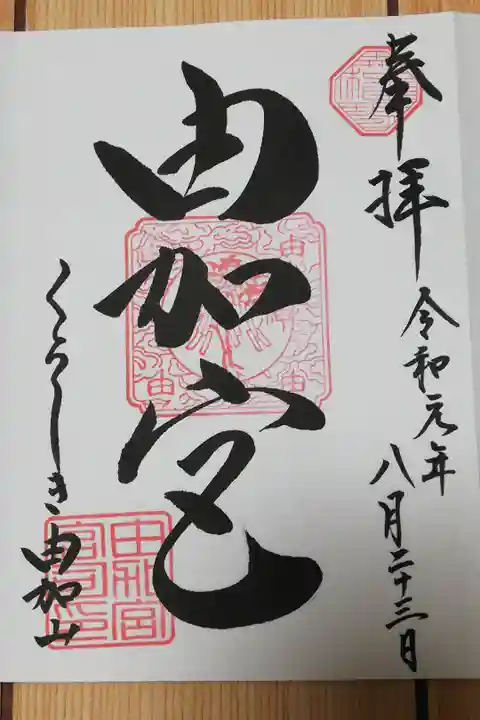 奉拝
令和元年
八月二十三日
由加宮
くらしき
由加山
由
由
由